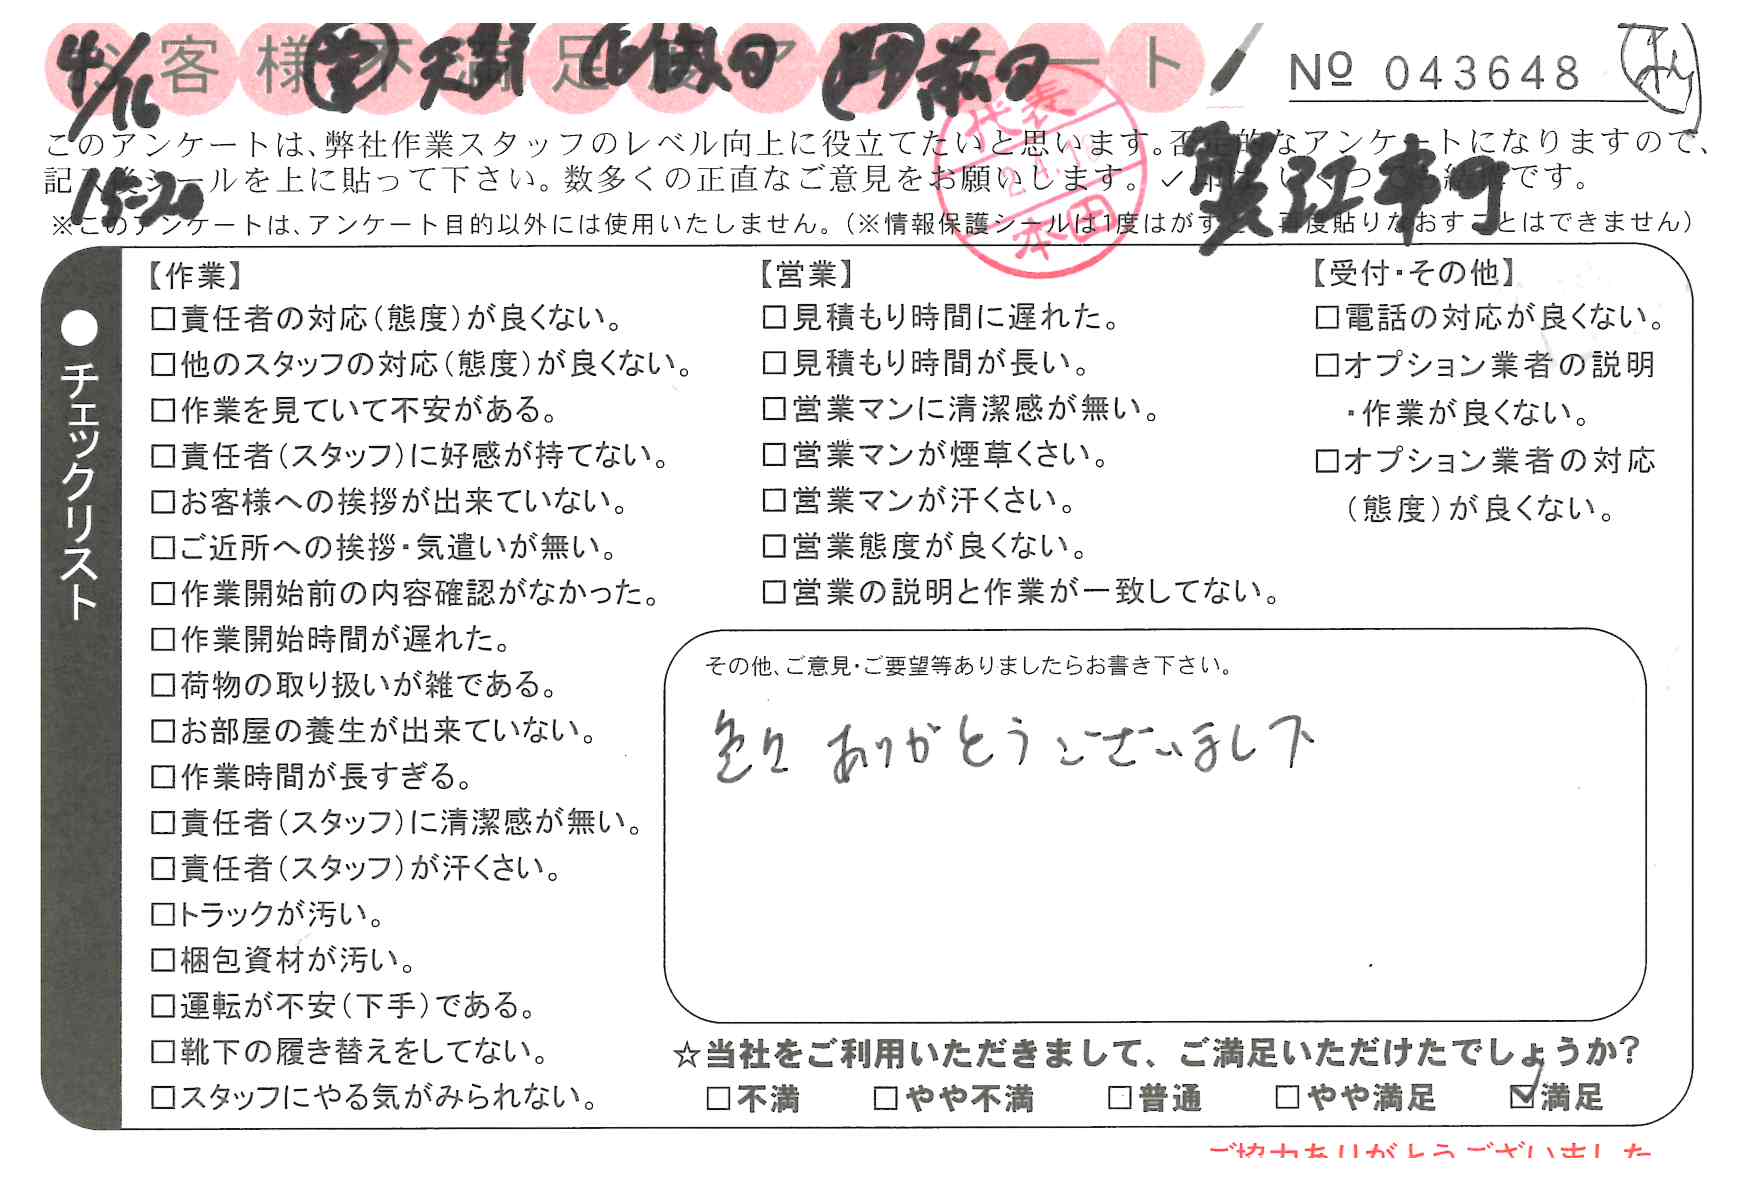 4/16
お客様不満足度アンケート
№ 043648
このアンケートは、弊社作業スタッフのレベル向上に役立てたいと思います。否定的なアンケートになりますので、
記入後シールを上に貼って下さい。数多くの正直なご意見をお願いします。✓印は、いくつでも結構です。
15:20
蟹江本町
代表
24.
本田
※このアンケートは、アンケート目的以外には使用いたしません。（※情報保護シールは1度はがすと、再度貼りなおすことはできません）
●チェックリスト
【作業】
□責任者の対応（態度）が良くない。
□他のスタッフの対応（態度）が良くない。
□作業を見ていて不安がある。
□責任者（スタッフ）に好感が持てない。
□お客様への挨拶が出来ていない。
□ご近所への挨拶・気遣いが無い。
□作業開始前の内容確認がなかった。
□作業開始時間が遅れた。
□荷物の取り扱いが雑である。
□お部屋の養生が出来ていない。
□作業時間が長すぎる。
□責任者（スタッフ）に清潔感が無い。
□責任者（スタッフ）が汗くさい。
□トラックが汚い。
□梱包資材が汚い。
□運転が不安（下手）である。
□靴下の履き替えをしてない。
□スタッフにやる気がみられない。
【営業】
□見積もり時間に遅れた。
□見積もり時間が長い。
□営業マンに清潔感が無い。
□営業マンが煙草くさい。
□営業マンが汗くさい。
□営業態度が良くない。
□営業の説明と作業が一致してない。
【受付・その他】
□電話の対応が良くない。
□オプション業者の説明
・作業が良くない。
□オプション業者の対応
（態度）が良くない。
その他、ご意見・ご要望等ありましたらお書き下さい。
色々 ありがとうございました
☆当社をご利用いただきまして、ご満足いただけたでしょうか？
□不満 □やや不満 □普通 □やや満足 ☑満足
ご協力ありがとうございました